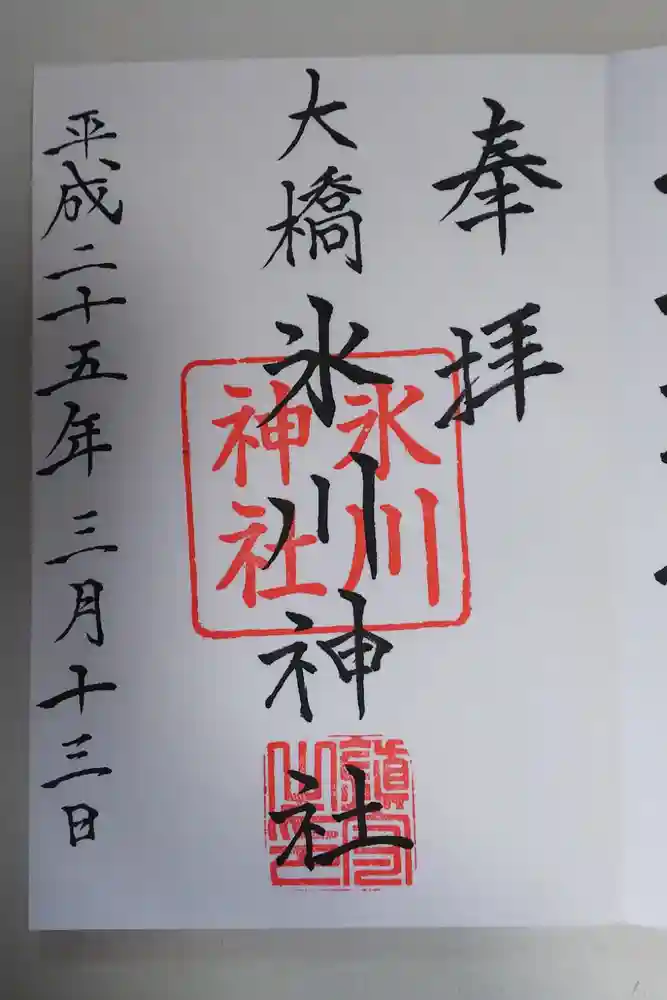 奉拝
大橋氷川神社
氷川
神社
鎮守
之印
平成二十五年三月十三日